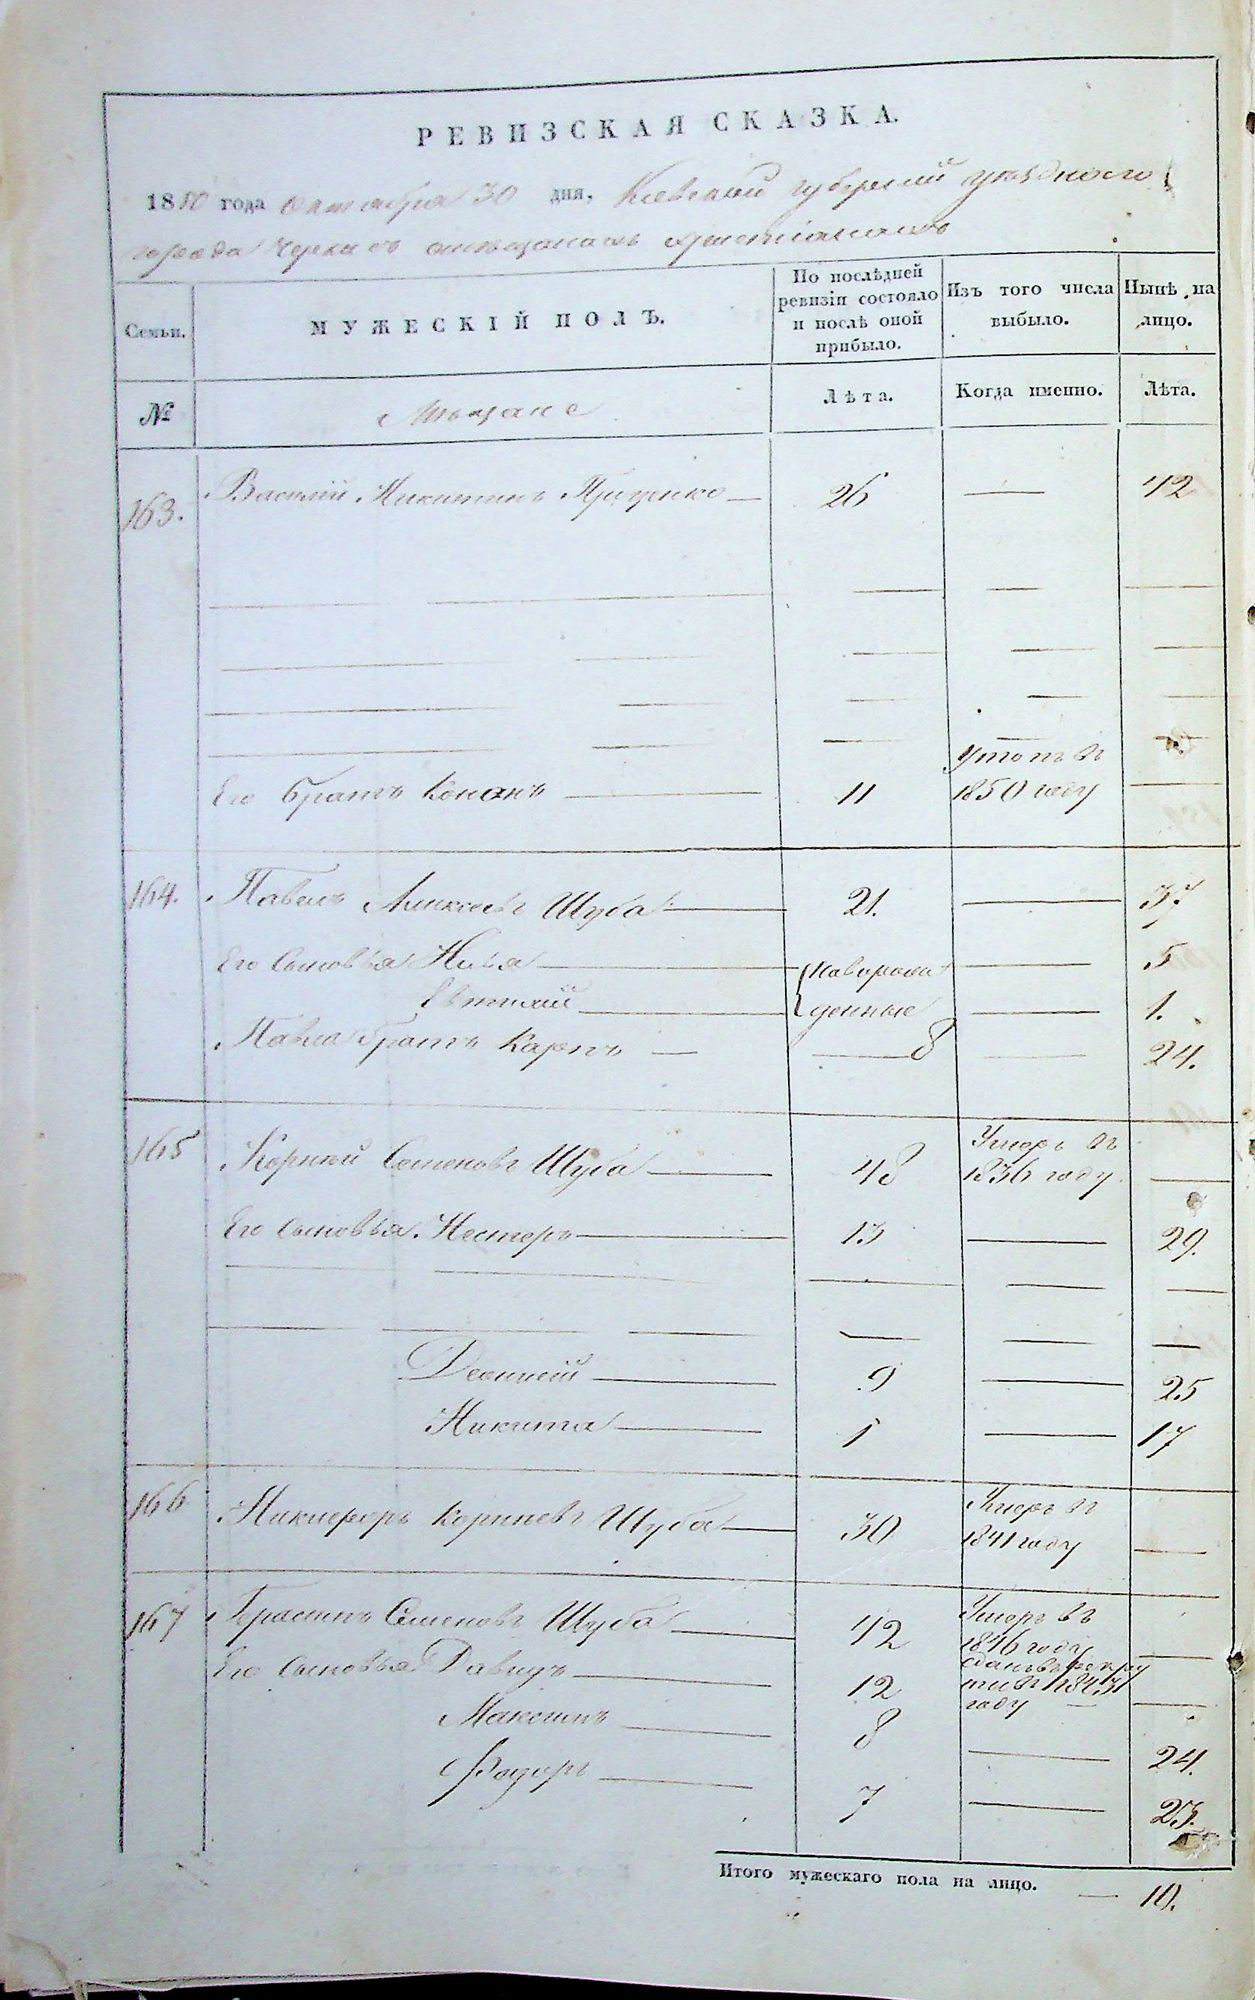 РЕВИЗСКАЯ СКАЗКА.
1850 года Октября 30 дня, Киевской губернии уезднаго
города Черкасъ о мещанахъ христіанахъ
Семьи. МУЖЕСКІЙ ПОЛЪ. По послѣдней ревизіи состояло и послѣ оной прибыло. Изъ того числа выбыло. Нынѣ на лицо.
№ Мещане Лѣта. Когда именно. Лѣта.
163. Василій Никитинъ Проценко — 26 — 42
Его братъ Кононъ — 11 Утопъ въ 1850 году —
164. Павелъ Алексеевъ Шуба — 21. — 37
Его сыновья Илья — новорож — 5
Евтихій — денные — 1.
Павла братъ Карпъ — 8 — 24.
165 Корній Семеновъ Шуба — 48 Умеръ въ 1836 году —
Его сыновья Нестеръ — 13 — 29.
Леонтій — 9 — 25
Никита — 1 — 17
166 Никифоръ Корніевъ Шуба — 30 Умеръ въ 1841 году —
167 Герасимъ Семеновъ Шуба — 42 Умеръ въ 1846 году —
Его сыновья Давидъ — 12 сданъ въ рекруты въ 1843 году —
Максимъ — 8 — 24.
Федоръ — 7 — 23.
Итого мужескаго пола на лицо. — 10.